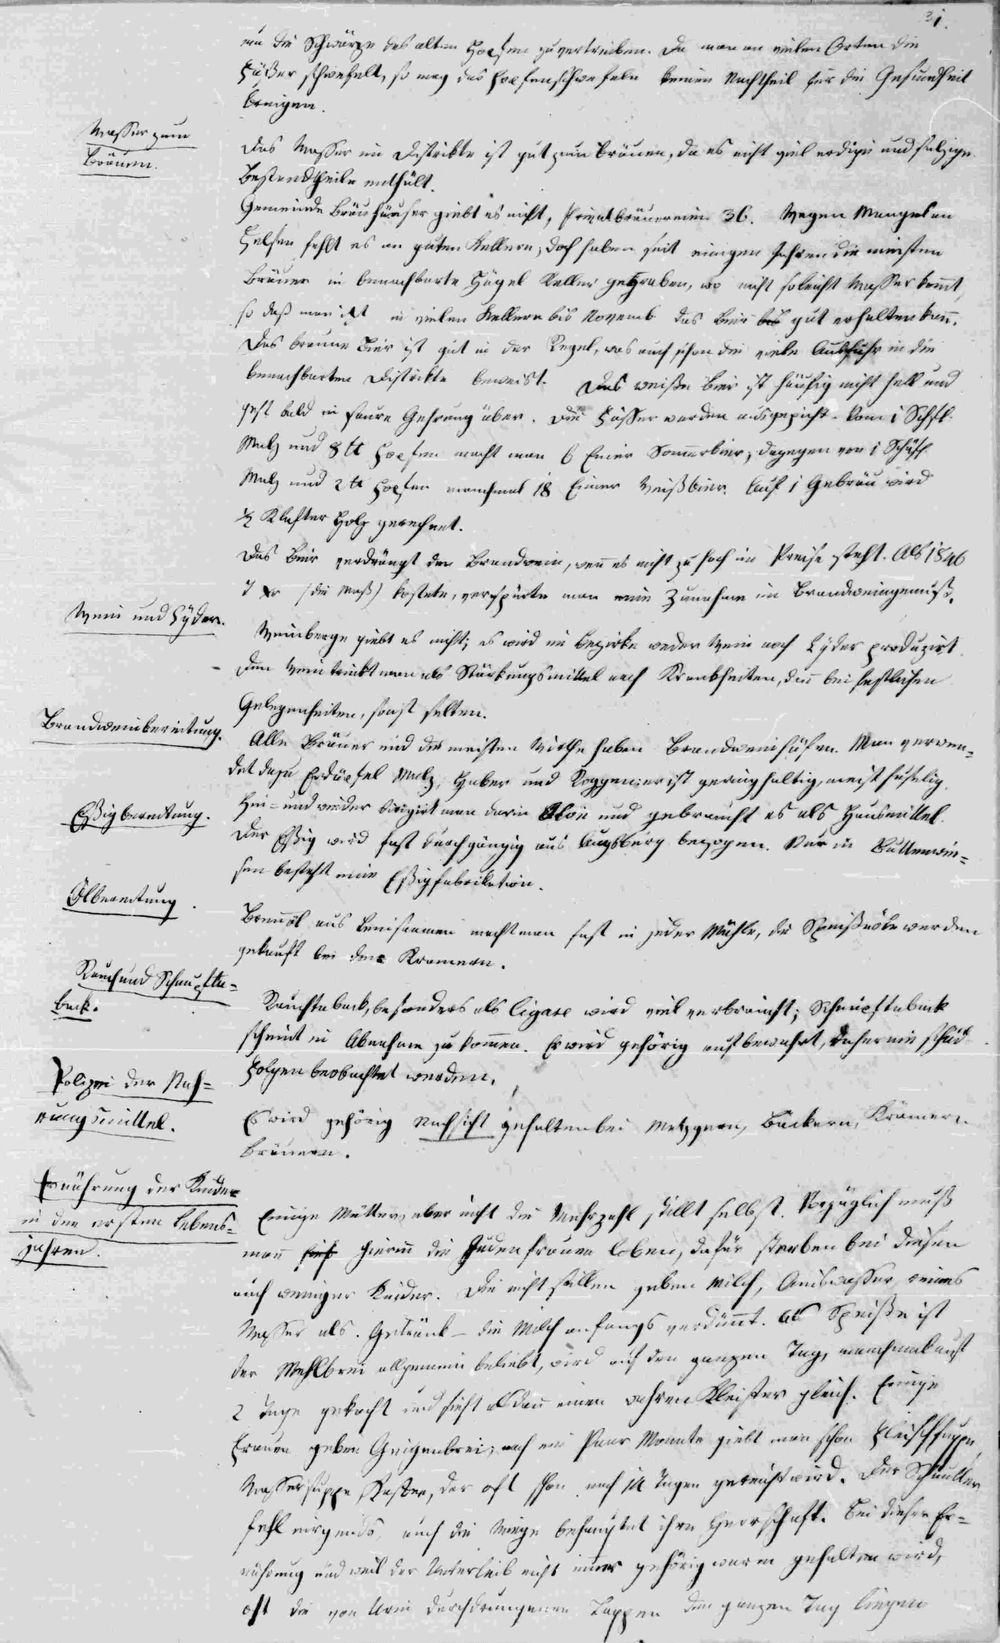 31.
um die Schwärze des alten Hopfens zu vertreiben. Da man an vielen Orten die
Fäßer schwefelt, so mag das Hopfenschwefeln keinen Nachtheil für die Gesundheit
bringen.
Wasser zum
Bräuen.
Das Wasser im Distrikte ist gut zum Bräuen, da es nicht viel erdige und salzige
Bestandtheile enthält.
Gemeinde Bräuhäuser giebt es nicht, Privatbräuereien 36. Wegen Mangel an
Felsen fehlt es an guten Kellern, doch haben seit einigen Jahren die meisten
Bräuer in benachbarte Hügel Keller gegraben, wo nicht so leicht Wasser kommt,
so daß man jetzt in vielen Kellern bis Novemb das Bier gut erhalten kann.
Das braune Bier ist gut in der Regel, was auch schon die viele Ausfuhr in die
benachbarten Distrikte beweist. Das weiße Bier ist häufig nicht hell und
geht bald in saure Gehrung über. Die Fässer werden ausgepicht. Vom 1 Schfl
Malz und 8 tt Hopfen macht man 6 Eimer Sommerbier, dagegen von 1 Schäff
Malz und 2 tt Hopfen manchmal 18 Eimer Weißbier. Auf 1 Gebräu wird
½ Klafter Holz gerechnet.
Das Bier verdrängt den Brandwein, wenn es nicht zu hoch im Preise steht. Als 1846
7 xr (die Maß) kostete, verspürte man eine Zunahme im Brandweingenuß.
Wein und Cyder.
Weinberge giebt es nicht; es wird im Bezirke weder Wein noch Cyder produzirt.
Den Wein trinkt man als Stärkungsmittel nach Krankheiten, dann bei festlichen
Gelegenheiten, sonst selten.
Brandweinbereitung.
Alle Bräuer und die meisten Wirthe haben Brandweinhäfen. Man verwen-
det dazu Erdäpfel Malz, Haber und Roggen; er ist geringhaltig, meist fuselig.
Hin- und wieder man darin Aloe und gebraucht es als Hausmittel.
Eßigbereitung.
Der Eßig wird fast durchgängig aus Augsburg bezogen. Nur in Buttenwie-
sen besteht eine Eßigfabrikation.
Ölbereitung
Brennöl aus Leinsaamen macht man fast in jeder Mühle, die Speißeöle werden
gekauft bei den Kramern.
Rauch und Schnupfta-
back.
Rauchtaback, besonders als Cigare wird viel verbraucht; Schnupftaback
scheint in Abnahme zu kommen. Er wird gehörig aufbewahrt, daher nie schäd
Folgen beobachtet werden.
Polizei der Nah-
rungsmittel.
Es wird gehörig Nachsicht gehalten bei Metzgern, Bäckern, Krämern
Bräuern.
Ernährung der Kinder
in den ersten Lebens-
jahren.
Einige Mütter, aber nicht die Mehrzahl stillt selbst. Vorzüglich muß
man hierin die Judenfrauen loben, dafür sterben bei diesen
auch weniger Kinder. Die nicht stillen geben Milch, Aniswasser, reines
Wasser als Getränk – die Milch anfangs verdünnt. Als Speiße ist
der Mehlbrei allgemein beliebt, wird auf den ganzen Tag, manchmal auf
2 Tage gekocht und sieht alsdann einem wahren Kleister gleich. Einige
Frauen geben Griesbrei, nach ein Paar Monate giebt man schon Fleischsuppe,
Wassersuppe, der oft schon nach 14 Tagen gereicht wird. Der Schnuller
fehl nirgends, auch die Wiege behauptet ihre Herrschaft. Bei dieser Er-
nährung und weil der Unterleib nicht immer gehörig warm gehalten wird,
oft die von Urin durchdrungenen Lappen den ganzen Tag liegen